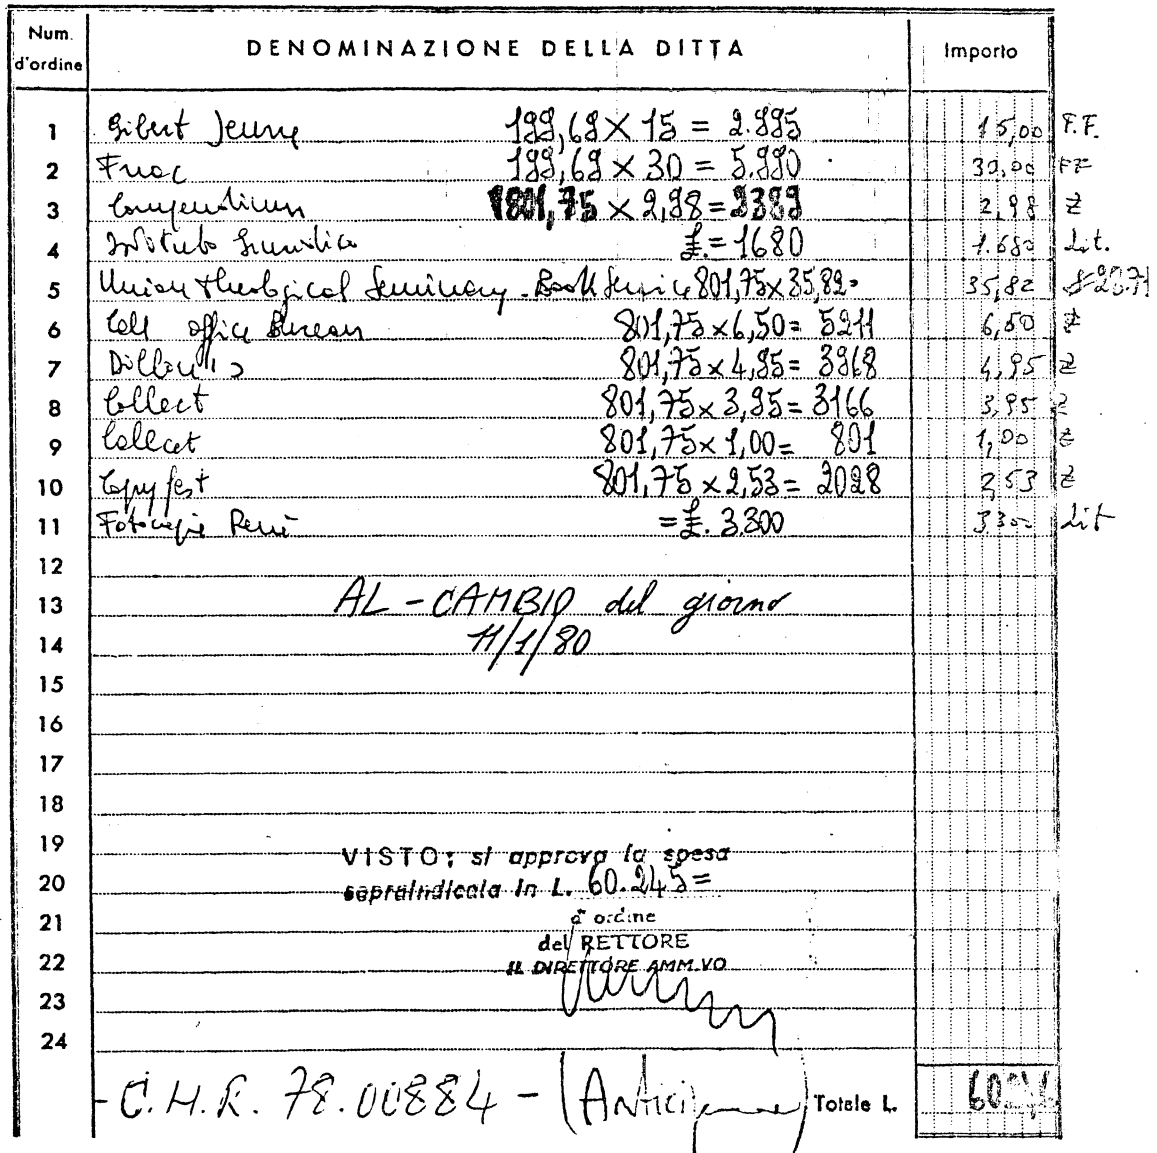 Num. d'ordine DENOMINAZIONE DELLA DITTA Importo
1 Gibert Jeune 199,69 × 15 = 2.995 15,00 F.F.
2 Fnac 199,69 × 30 = 5.990 30,00 FF
3 Compendium 801,75 × 2,98 = 2389 2,98 £
4 £. = 1680 1.680 Lit.
5 Union Theological Seminary - Book Service 801,75 × 35,82 = 35,82
6 Call office Bureau 801,75 × 6,50 = 5211 6,50 £
7 Dillon's 801,75 × 4,95 = 3968 4,95 £
8 Collect 801,75 × 3,95 = 3166 3,95 £
9 Collect 801,75 × 1,00 = 801 1,00 £
10 Copy fest 801,75 × 2,53 = 2028 2,53 £
11 Fotocopie = £. 3.300 3.300 Lit
12
13 AL - CAMBIO del giorno
14 11/1/80
15
16
17
18
19 VISTO: si approva la spesa
20 sopraindicata in L. 60.245=
21 d'ordine
del RETTORE
22 IL DIRETTORE AMM.VO
23
24
- C.H.R. 78.00884 - Totale L.